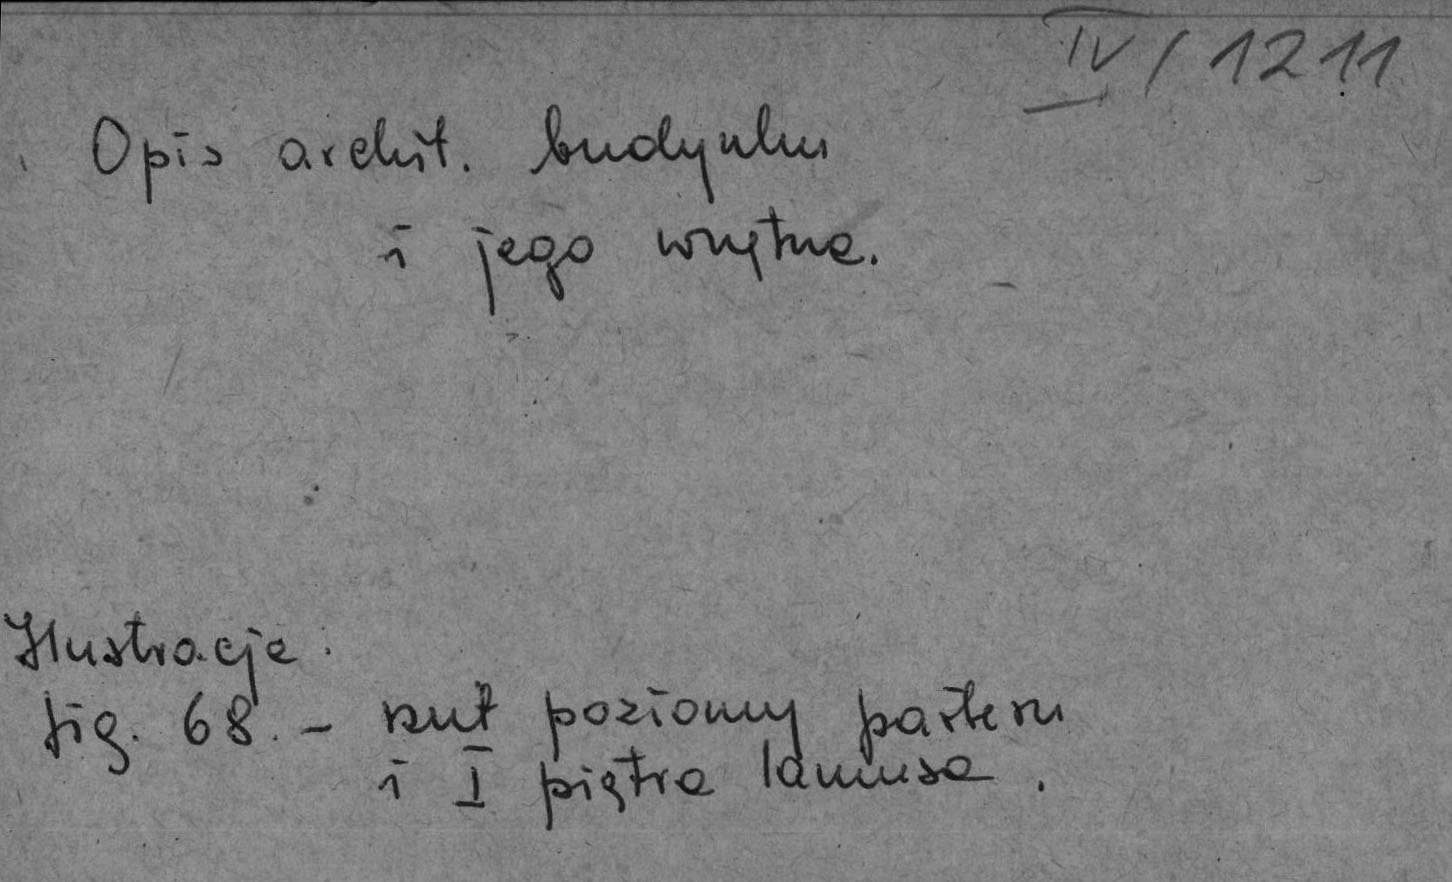 IV/1211
Opis archit. budynku
i jego wnętrza.
Ilustracje:
fig. 68. - rzut poziomy parteru
i I piętra lamusa.